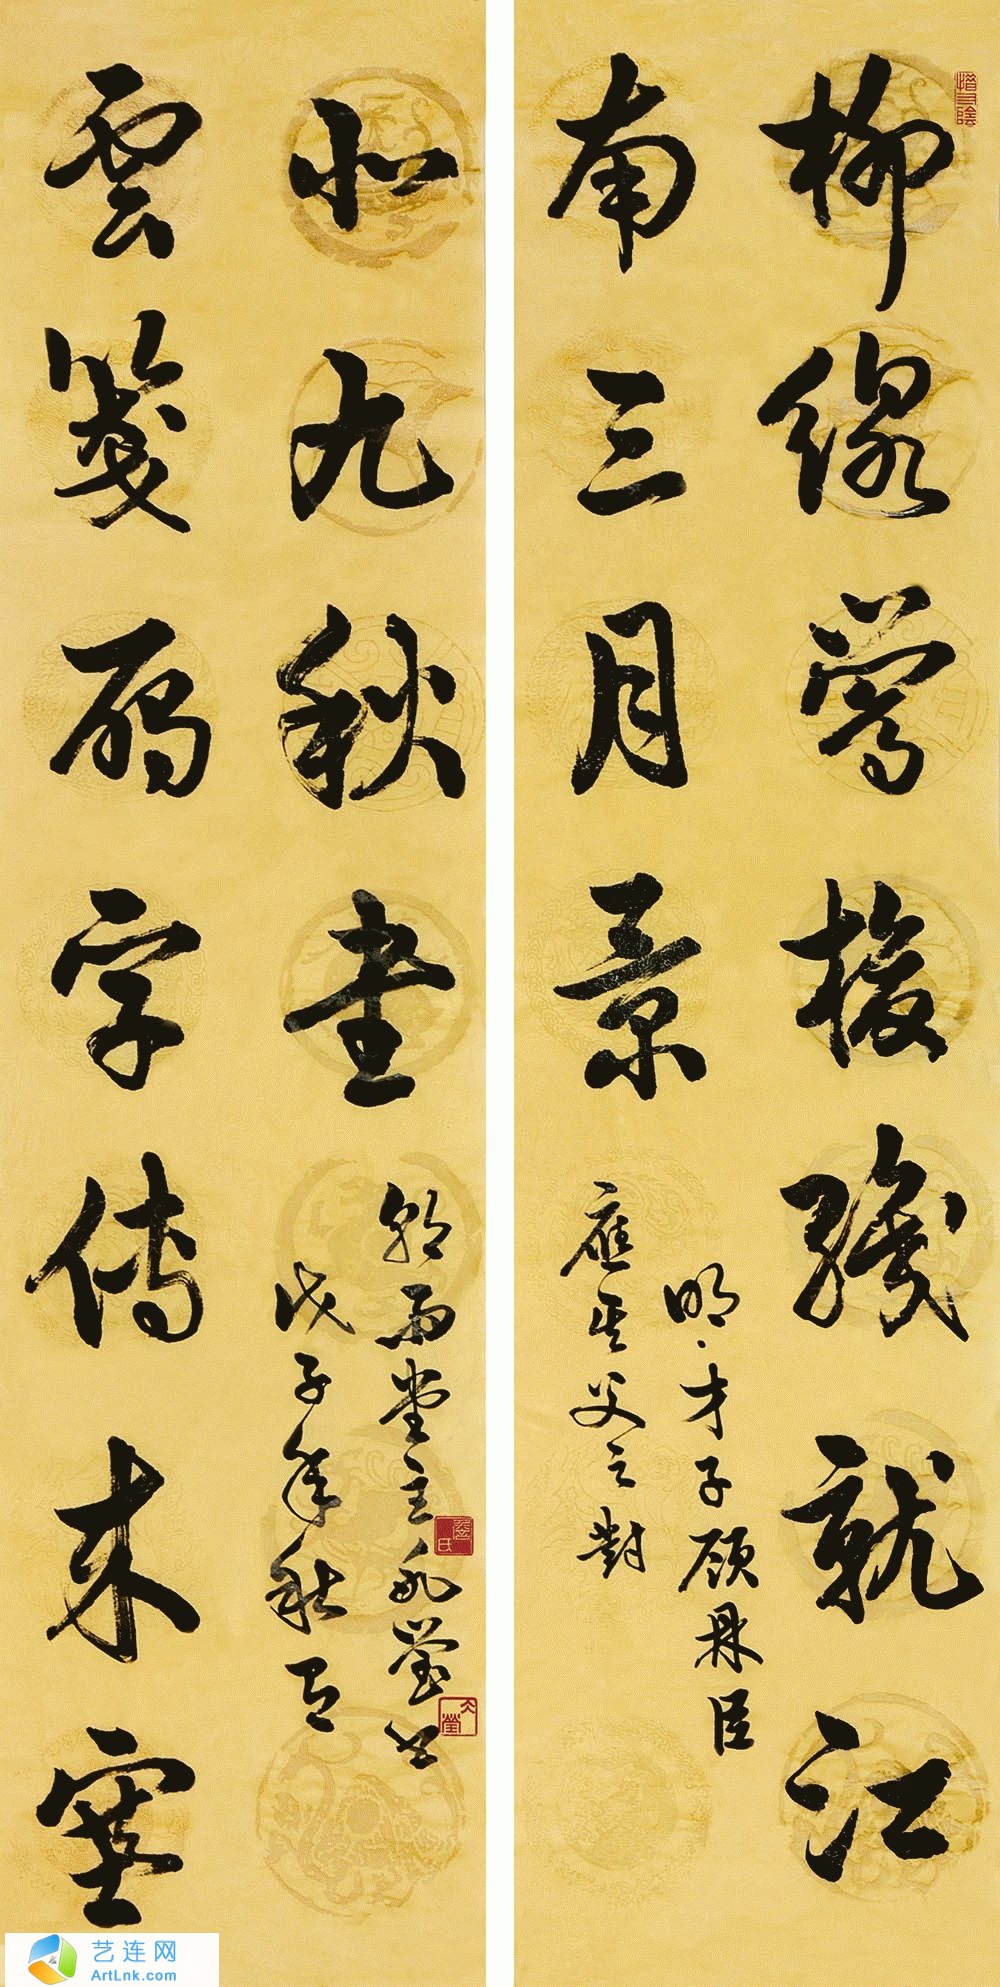 柳線鶯梭織就江
南三月景
明·才子顧鼎臣
應其父之對
雲箋鴈字傳來塞
北九秋書
雨堂主
戊子年秋月
艺连网
ArtLnk.com